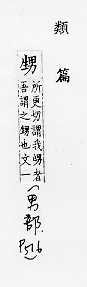 類篇
甥
所更切謂我舅者
吾謂之甥也文一
(男部. P516)